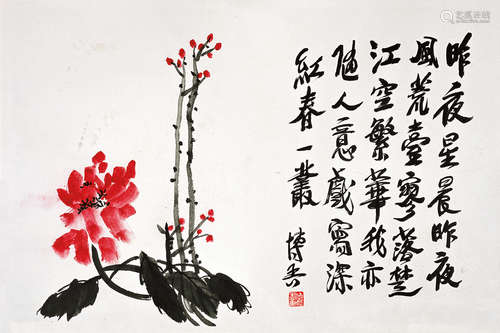 昨夜星晨昨夜
風荒臺寥落楚
江空繁華我亦
隨人意戲寫深
紅春一叢
博兵